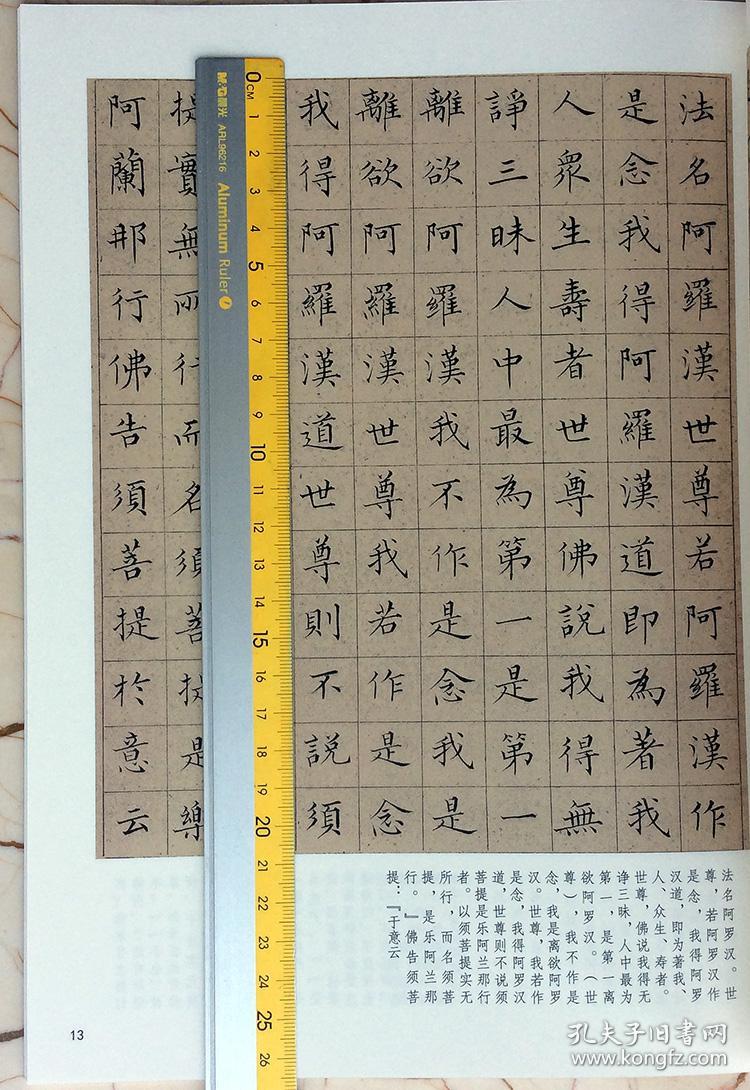 法名阿羅漢世尊若阿羅漢作
是念我得阿羅漢道即為著我
人眾生壽者世尊佛說我得無
諍三昧人中最為第一是第一
離欲阿羅漢我不作是念我是
離欲阿羅漢世尊我若作是念
我得阿羅漢道世尊則不說須
提實無所行而名須菩提是樂
阿蘭那行佛告須菩提於意云
法名阿罗汉。世
尊，若阿罗汉作
是念，我得阿罗
汉道，即为著我、
人、众生、寿者。
世尊，佛说我得无
诤三昧，人中最为
第一，是第一离
欲阿罗汉。（世
尊），我不作是
念，我是离欲阿罗
汉。世尊，我若作
是念，我得阿罗汉
道，世尊则不说须
菩提是乐阿兰那行
者。以须菩提实无
所行，而名须菩
提，是乐阿兰那
行。』佛告须菩
提：『于意云
M&G 晨光 ARL96216 Aluminum Ruler
0CM 1 2 3 4 5 6 7 8 9 10 11 12 13 14 15 16 17 18 19 20 21 22 23 24 25 26
13
孔夫子旧书网
www.kongfz.com